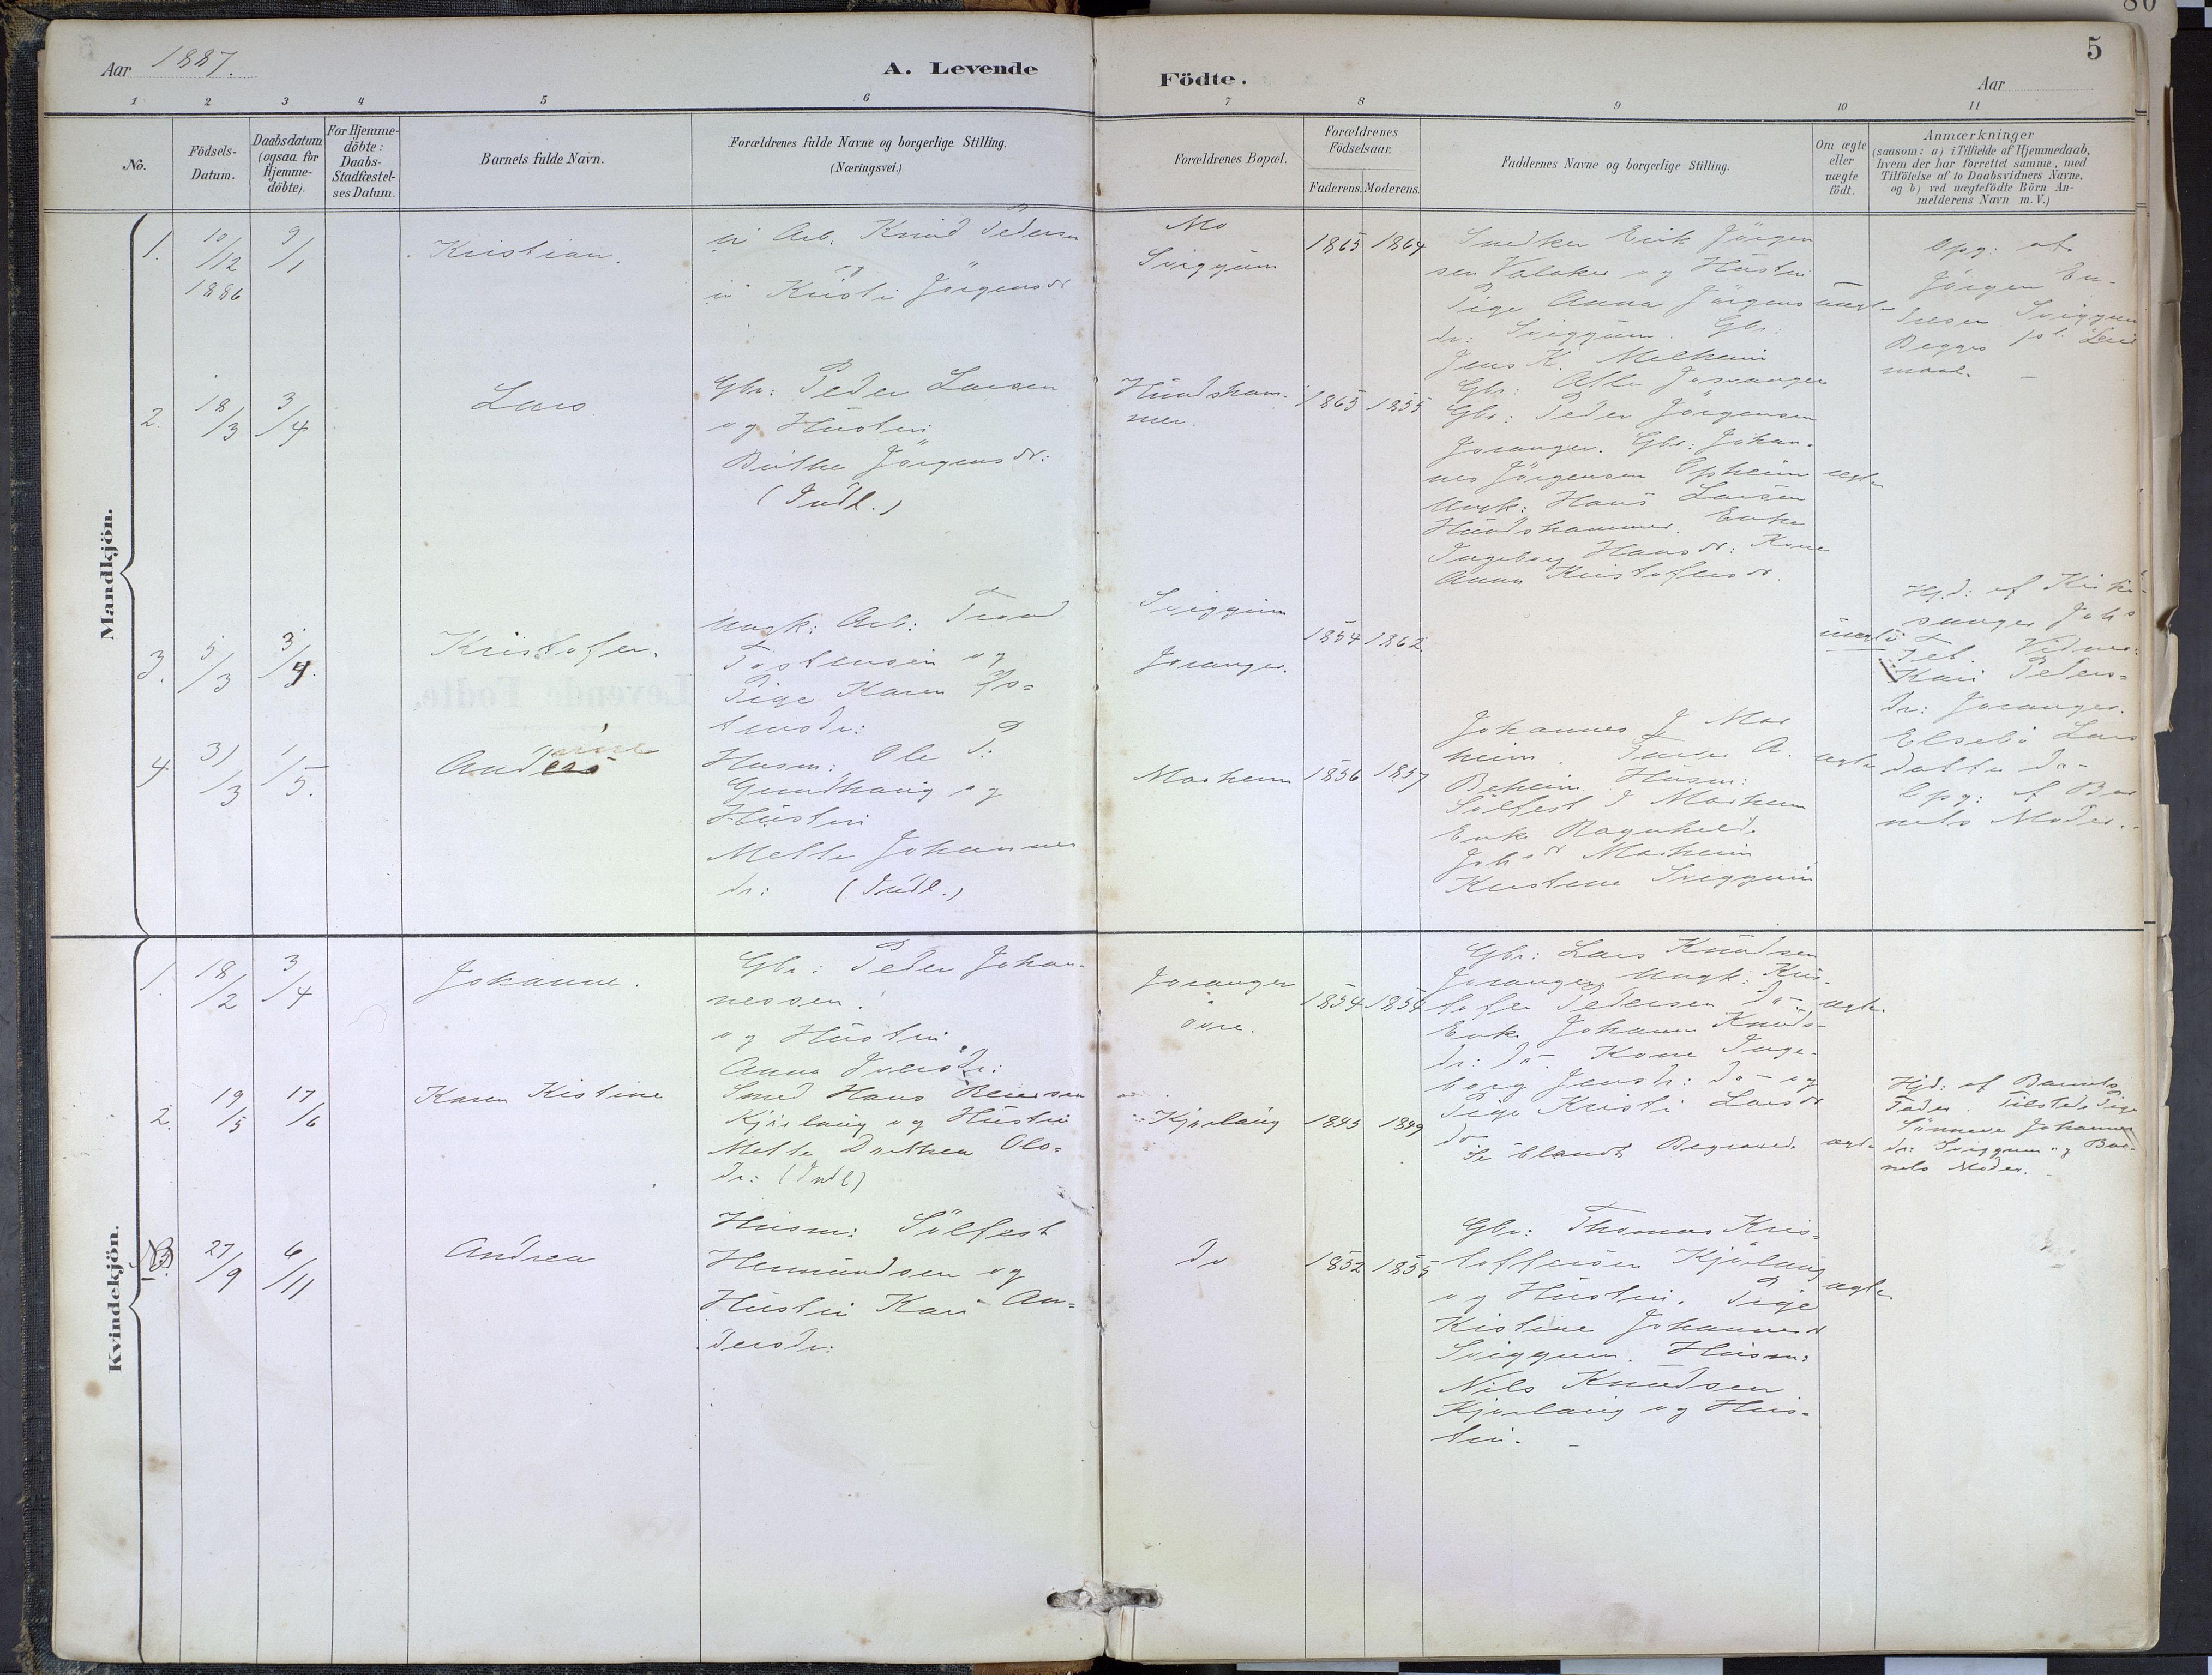 80
5
Aar 1887.
A. Levende
Födte.
Aar
1 2 3 4 5 6 7 8 9 10 11
No.
Födsels-Datum.
Daabsdatum (ogsaa for Hjemme-döbte).
For Hjemme-döbte: Daabs-Stadfæstel-ses Datum.
Barnets fulde Navn.
Forældrenes fulde Navne og borgerlige Stilling.
(Næringsvei.)
Forældrenes Bopæl.
Forældrenes Födselsaar.
Faderens. Moderens.
Faddernes Navne og borgerlige Stilling.
Om ægte eller uægte födt.
Anmærkninger
(saasom: a) i Tilfælde af Hjemmedaab,
hvem der har forrettet samme, med
Tilföielse af to Daabsvidners Navne.
og b) ved uægtefödte Börn An-
melderens Navn m. V.)
Mandkjön.
1.
10/12
1886
9/1
Kristian.
Arb. Knud Pedersen
og
Kristi Jörgensdr
Mo
Sviggum
1865 1864
Snedker Erik Jörgen
sen Valaker og Hustru
Pige Anna Jörgens
dr: Sviggum. Gbr:
Jens K. Melheim
uægte
Opg: af
Jörgen En-
Sviggum
Begges 1st Leier
maal.
2.
18/3
3/4
Lars
Gbr: Peder Larsen
og Hustru
Birthe Jörgensdr:
(Indl.)
Hundsham-
mer.
1865 1855
Gbr: Peder Jörgensen
Joranger. Gbr: Johan-
nes Jörgensen Opheim
Ungk: Hans Larsen
Hundshammer. Enke
Ingeborg Hansdr: Kone
Anna Kristofersdr.
ægte
3.
5/3
3/4.
Kristofer.
Ungk: Arb: Trond
Tostensen og
Pige Karen
Sviggum
Joranger.
1854 1862
uægte
Hjd: af Kirke-
sanger Johs
Vidner:
Kari Peders-
dr: Joranger.
Elsebö Lars
datter do-
Opg: af Bar
nets Moder.
4
31/3
1/5.
Anders
ine
Husm: Ole P.
Grindhaug og
Hustru
Mette Johannes
dr: (Indl.)
Marheim
1856 1857
Johannes J Mar
heim. A.
Beheim Husm:
Sölfest J Marheim
Enke Ragnhild
Johsdr Marheim
Kirstine Sviggum
ægte
Kvindekjön.
1.
18/2
3/4
Johanne.
Gbr: Peder Johan-
nessen
og Hustru
Anna Iversdr:
Joranger
övre.
1854 1854
Gbr: Lars Knudsen
Joranger. Ungk: Kris-
tofer Pedersen do-
Enke Johanne Knuds-
dr: do- Kone Inge-
borg Jensdr: do- og
Pige Kristi Larsdr
do
ægte.
2.
19/5
17/6
Karen Kistine
Smed Hans Reiersen
Kjörlaug og Hustru
Mette Dorthea Ols-
dr: (Indl)
Kjörlaug
1845 1849
Se blandt Begravede
ægte
Hjd: af Barnets
Fader. Tilstede Pige
Sönneve Johannes
dr: Sviggum og Bar-
nets Moder.
3.
27/9
6/11
Andrea
Husm: Sölfest
Hermundsen og
Hustru Kari An-
dersdr:
do
1852 1855
Gbr: Thomas Kris-
toffersen Kjörlaug
og Hustru. Pige
Kistine Johannesdr
Sviggum. Husm:
Nils Knudsen
Kjörlaug og Hus-
tru.
ægte.